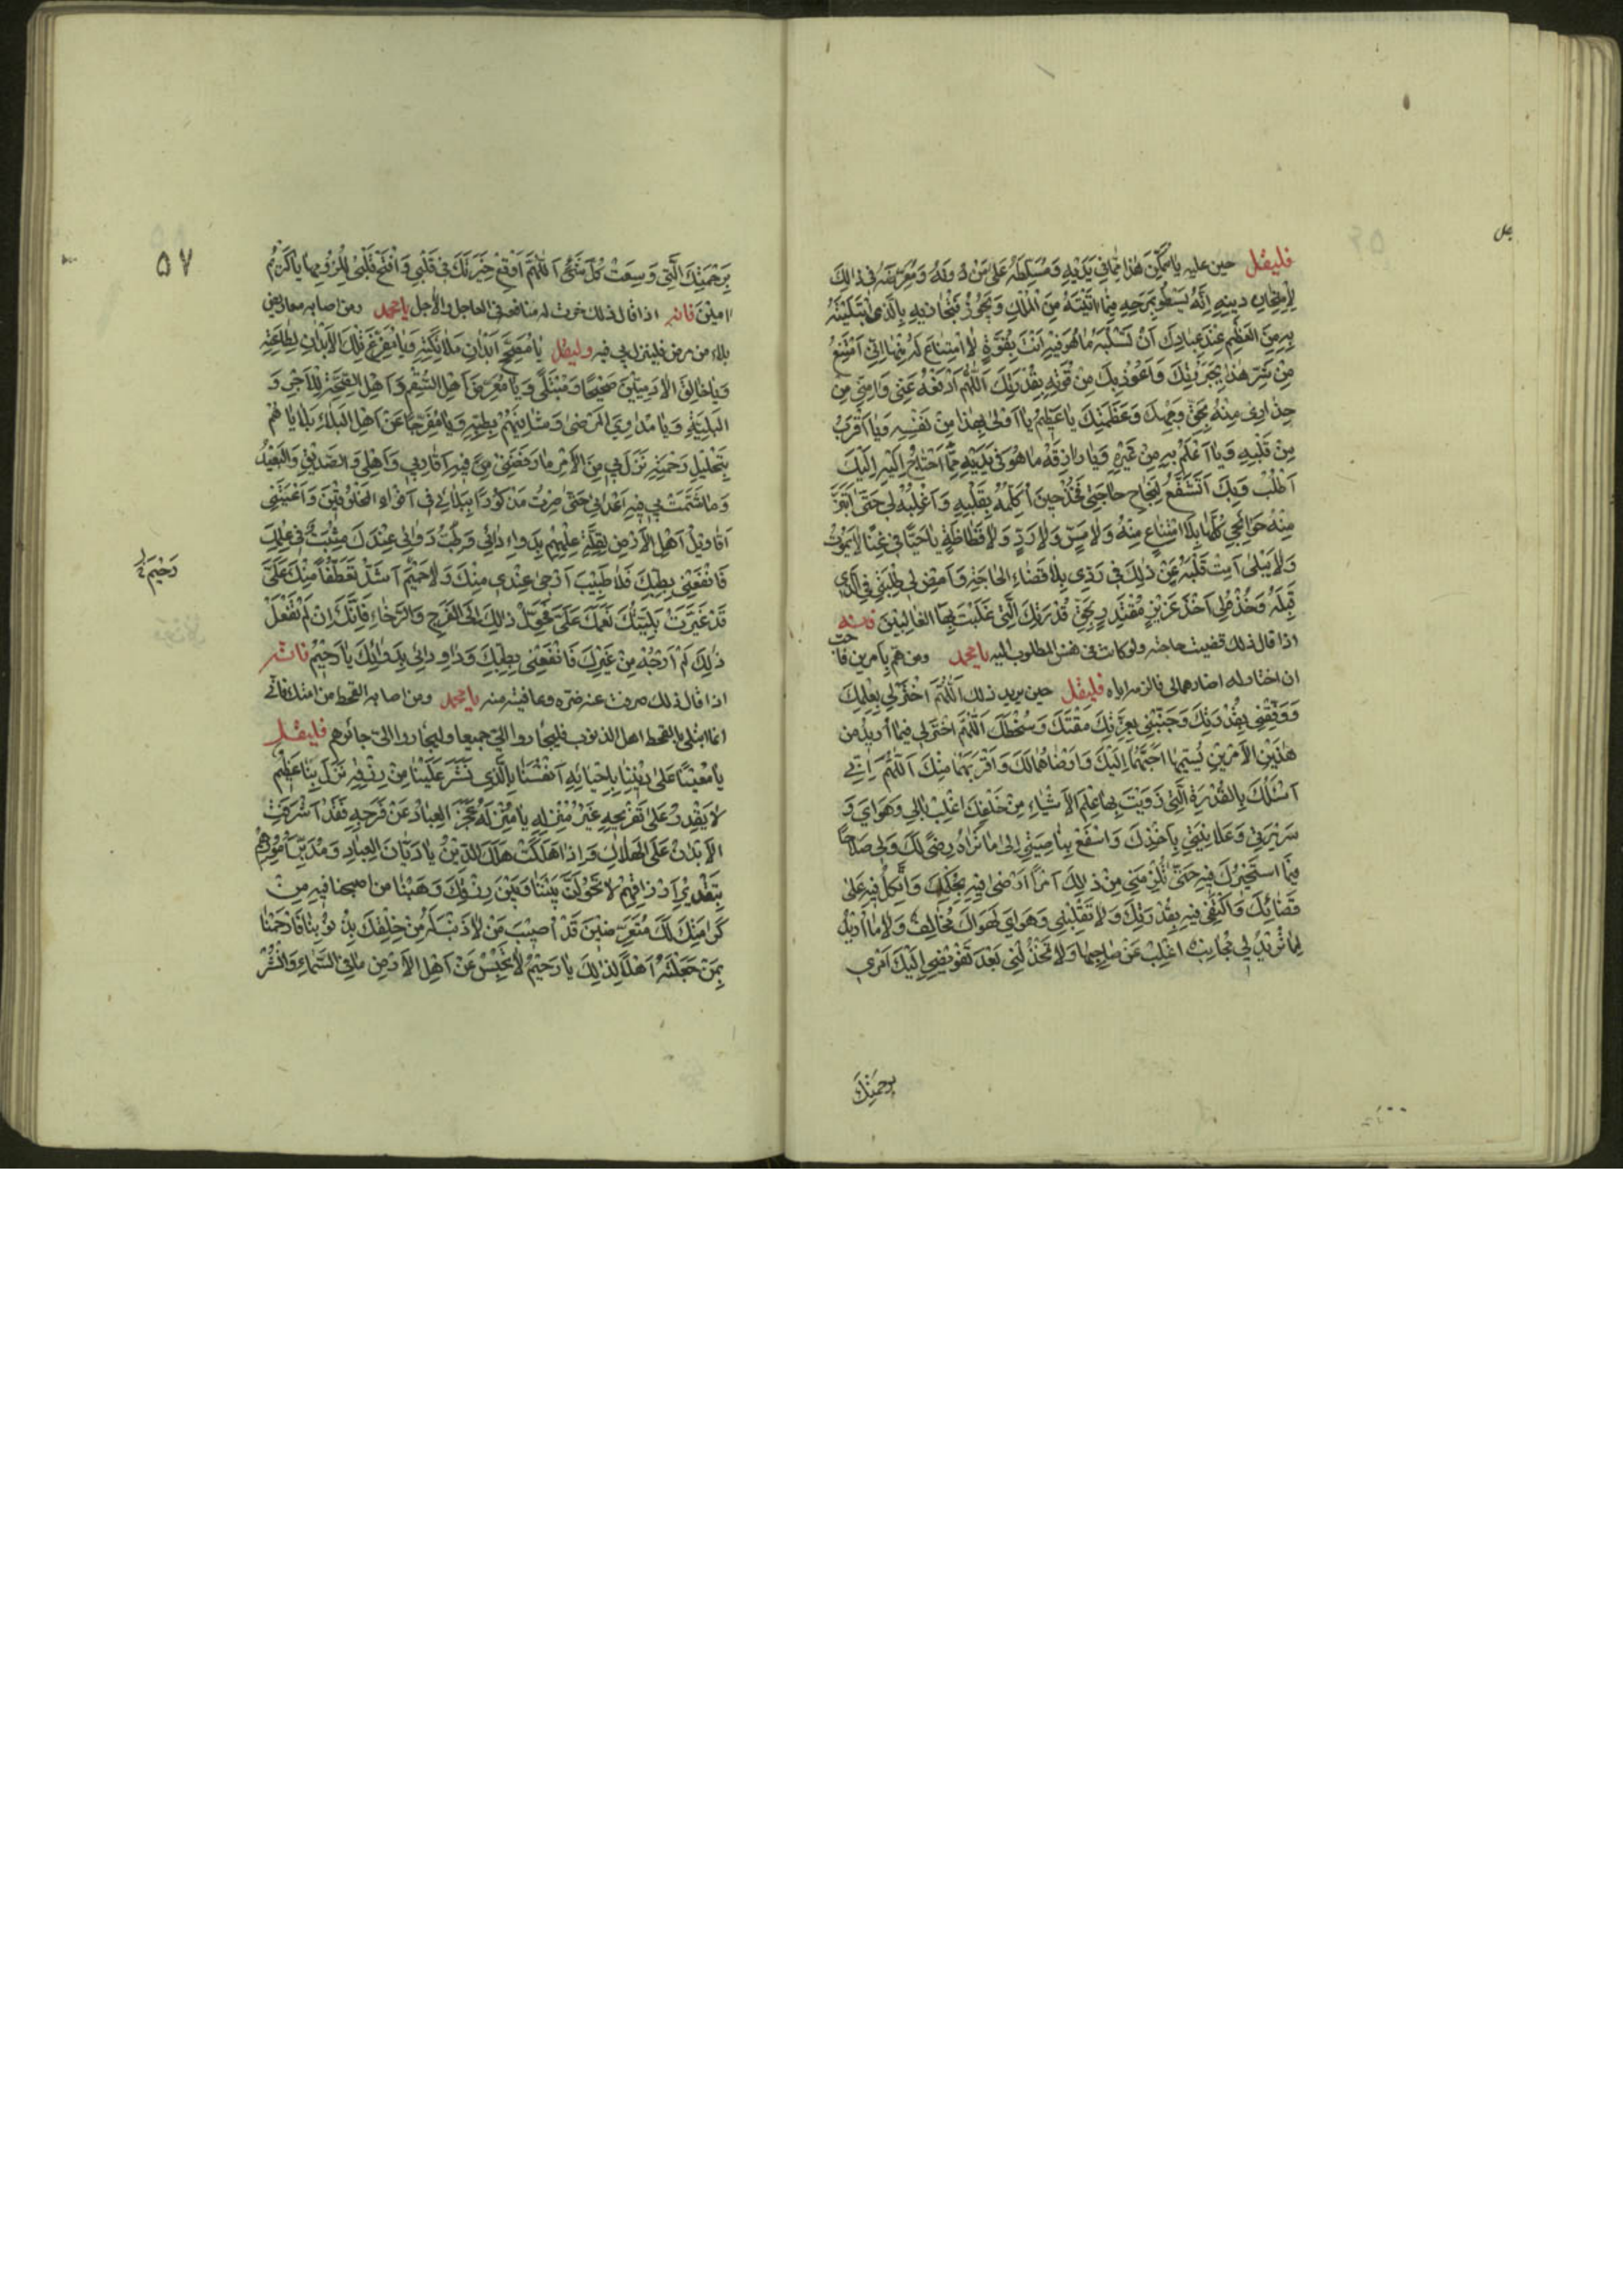 فليقل حين عليه يا ممكن هذا مما في يديه ومسلطه على من دونه ومعرضه في ذلك
لامتحان دينه انه يسطو بمرحه فيما اتيته من الملك ويجوز فينحا بالذى ابتليته
به من العظم عند عبادك ان تسلبه ما هو فيه انت بقوة لا امتناع له منها اني امتنع
من شر هذا بجبرتك واعوذ بك من قوته بقدرتك اللهم ادفعه عني وامني من
حذاري منه بحق وجهك وعظمتك يا عظيم يا اولى بهذا من نفسه ويا اقرب
من قلبه ويا اعلم به من غيره ويا رازقه ما هو في يديه مما احتاج اليه اليك
اطلب وبك اتشفع لنجاح حاجتي فخذ حين اكلمه بقلبه واغلبه لي حتى ابتز
منه حوائجي كلها بلا امتناع منه ولا من ولا رد ولا فظاظة يا حيا في غنى لا يموت
ولا يبلى امت قلبه عن ذلك في ردي بلا قضاء الحاجة وامض لي طلبتي في الذي
قبله وخذه لي اخذ عزيز مقتدر بحق قدرتك التي غلبت بها الغالبين فانه
اذا قال ذلك قضيت حاجته ولو كانت في نفس المطلوب اليه يا محمد ومن هم بامرين فاحب
ان اختار له ارضاهما لي فالزمه اياه فليقل حين يريد ذلك اللهم اختر لي بعلمك
ووفقني بقدرتك وجنبني بعزتك مقتك وسخطك اللهم اختر لي فيما اريد من
هذين الامرين تسميهما احبهما اليك وارضاهما لك واقربهما منك اللهم اني
اسئلك بالقدرة التي زويت بها علم الاشياء من خلقك اغلب بالي وهواي و
سريرتي وعلانيتي باخذك واسفع بناصيتي الى ما تراه رضى لك ولي صلاحا
فيما استخيرك فيه حتى تلزمني من ذلك امرا ارضى فيه بحكمك واتكل فيه على
قضائك واكتفي فيه بقدرتك ولا تقلبني وهواي لهواك مخالف ولا ما اريد
لما تريد لي مجانب اغلب عن صلاحها ولا تخذلني بعد تفويضي اليك امري
برحمتك
٥٧
برحمتك التي وسعت كل شئ اللهم اوقع خيرتك في قلبي وافتح قلبي للزومها يا كريم
امين فانه اذا قال ذلك خرت له منافعه في العاجل والاجل يا محمد ومن اصابه معاريض
بلاء من مرض فلينزل بي فيه وليقل يا مصح ابدان ملائكته ويا مفرغ تلك الابدان لطاعته
ويا خالق الادميين صحيحا ومبتلى ويا معرض اهل السقم واهل الصحة للاجر و
البلية ويا مداوي المرضى وشافيهم بطبه ويا مفرجا عن اهل البلاء بلاياهم
بتحليل رحمته نزل بي من الامر ما رفضني فيه اقاربي واهلي والصديق والبعيد
وما شمت بي فيه اعدائي حتى صرت مذكورا ببلائي في افواه المخلوقين واعيتني
اقاويل اهل الارض لقلة علمهم بدواء دائي وطب دوائي عندك مثبت في علمك
فانفعني بطبك فلا طبيب ارجى عندي منك ولا حميم اشد تعطفا منك علي
قد غيرت بليتك نعمك علي فحول ذلك الى الفرج والرخاء فانك ان لم تفعل
ذلك لم ارجه من غيرك فانفعني بطبك وداو دائي بدوائك يا رحيم فانه
رحيم
اذا قال ذلك صرفت عنه ضره وعافيته منه يا محمد ومن اصابه القحط من امتك فاني
انما ابتلي بالقحط اهل الذنوب فليجاروا الي جميعا وليجاروا الي جائرهم فليقل
يا معيننا على ديننا باحيائه انفسنا بالذى نشر علينا من رزقه نزل بنا عظيم
لا يقدر على تفريجه غير منزله يا منزله عجز العباد عن فرجه فقد اشرفت
الابدان على الهلاك واذا هلكت هلك الدين يا ديان العباد ومدبر امورهم
بتقدير ارزاقهم لا تحولن بيننا وبين رزقك وهبنا ما اصبحنا فيه من
كرامتك لك متعرضين قد اصيب من لا ذنب له من خلقك بذنوبنا فارحمنا
بمن جعلته اهلا لذلك يا رحيم لا تحبس عن اهل الارض ما في السماء وانشر